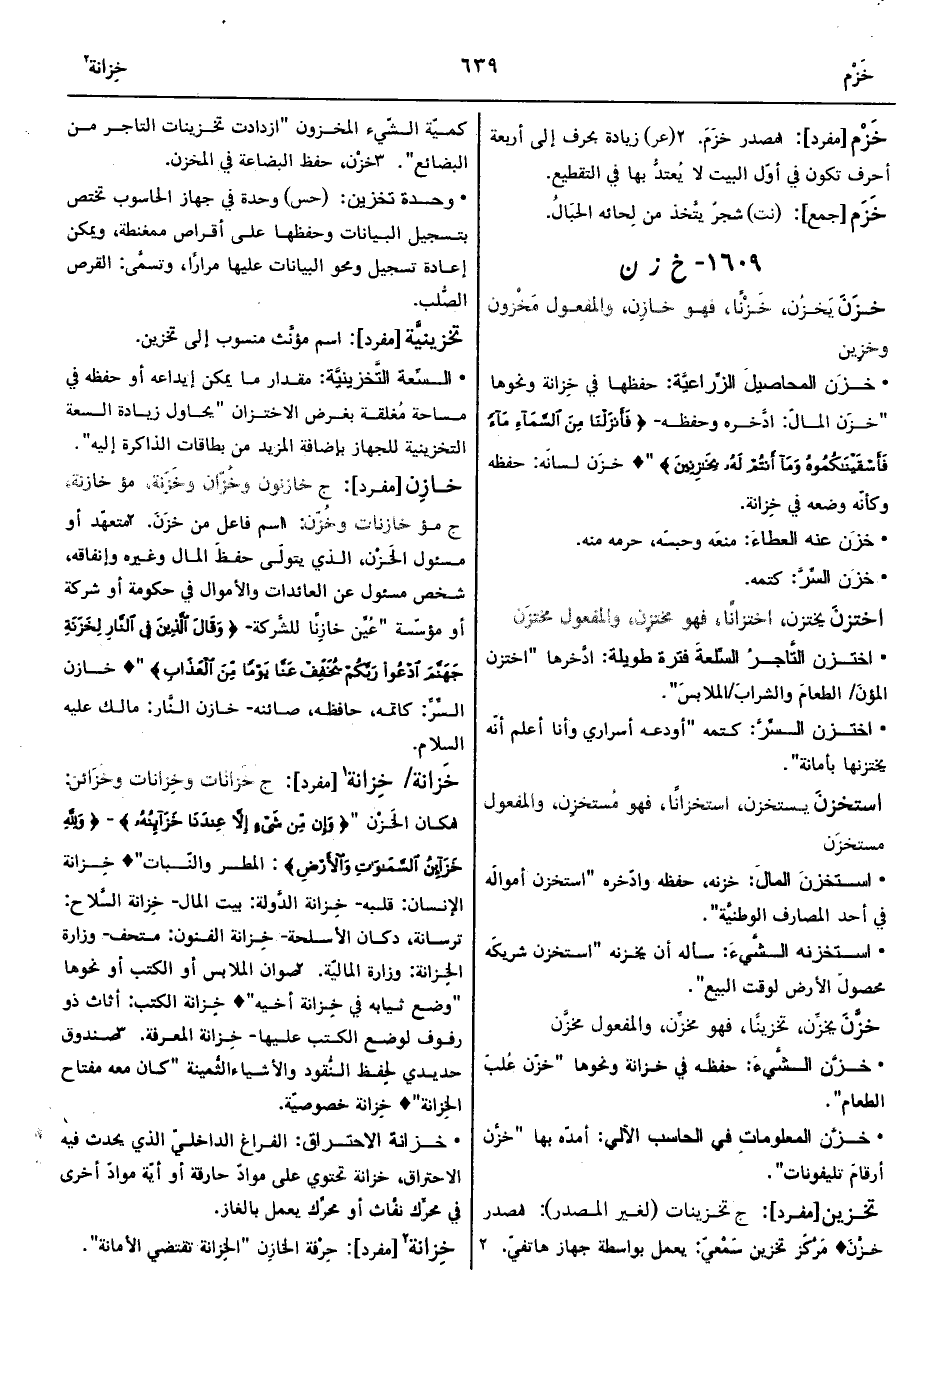 خَزْم
٦٣٩
خِزانة٢
خَزْم [مفرد]: ١مصدر خزَمَ. ٢(عر) زيادة بحرف إلى أربعة
أحرف تكون في أوّل البيت لا يُعتدُّ بها في التقطيع.
خَزَم [جمع]: (نت) شجرٌ يتُّخذ من لِحائه الحِبَالُ.
١٦٠٩- خ ز ن
خزَنَ يَخزُن، خَزْنًا، فهو خازِن، والمفعول مَخْزون
وخزين
• خزَن المحاصيلَ الزِّراعيَّة: حفظها في خِزانة ونحوها
"خزَن المالَ: ادَّخره وحفظه- ﴿ فَأَنزَلْنَا مِنَ ٱلسَّمَآءِ مَآءً
فَأَسْقَيْنَٰكُمُوهُ وَمَآ أَنتُمْ لَهُۥ بِخَٰزِنِينَ ﴾ "♦ خزَن لسانَه: حفظه
وكأنّه وضعه في خزانة.
• خزَن عنه العطاءَ: منعَه وحبسَه، حرمه منه.
• خزَن السِّرَّ: كتمه.
اختزنَ يختزن، اختزانًا، فهو مختزِن، والمفعول مختزَن
• اختزن التَّاجرُ السِّلعةَ فترة طويلة: ادَّخرها "اختزن
المؤنَ/ الطعامَ والشرابَ/الملابسَ".
• اختزن السِّرَّ: كتمه "أودعه أسراري وأنا أعلم أنّه
يختزنها بأمانة".
استخزنَ يستخزن، استخزانًا، فهو مُستخزِن، والمفعول
مستخزَن
• استخزنَ المالَ: خزنه، حفظه وادّخره "استخزن أموالَه
في أحد المصارف الوطنيَّة".
• استخزنه الشَّيءَ: سأله أن يخزنه "استخزن شريكَه
محصولَ الأرض لوقت البيع".
خزَّنَ يخزِّن، تخزينًا، فهو مخزِّن، والمفعول مخزَّن
• خزَّن الشَّيءَ: حفظه في خزانة ونحوها "خزّن عُلبَ
الطعام".
• خزَّن المعلوماتِ في الحاسب الآلي: أمدّه بها "خزَّن
أرقامَ تليفونات".
تخزين [مفرد]: ج تخزينات (لغير المصدر): ١مصدر
خزَّنَ♦ مَرْكَز تخزين سَمْعيّ: يعمل بواسطة جهاز هاتفيّ. ٢
كميّة الشّيء المخزون "ازدادت تخزينات التاجر من
البضائع". ٣خزْن، حفظ البضاعة في المخزن.
• وحدة تخزين: (حس) وحدة في جهاز الحاسوب تختص
بتسجيل البيانات وحفظها على أقراص ممغنطة، ويمكن
إعادة تسجيل ومحو البيانات عليها مرارًا، وتسمَّى: القرص
الصُّلب.
تخزينيَّة [مفرد]: اسم مؤنَّث منسوب إلى تخزين.
• السِّعة التَّخزينيَّة: مقدار ما يمكن إيداعه أو حفظه في
مساحة مُغلقة بغرض الاختزان "يحاول زيادة السعة
التخزينية للجهاز بإضافة المزيد من بطاقات الذاكرة إليه".
خازِن [مفرد]: ج خازنون وخُزّان وخَزَنة، مؤ خازنة،
ج مؤ خازنات وخُزَّن: ١اسم فاعل من خزَنَ. ٢متعهّد أو
مسئول الخَزْن، الذي يتولّى حفظَ المال وغيره وإنفاقه،
شخص مسئول عن العائدات والأموال في حكومة أو شركة
أو مؤسّسة "عُيِّن خازِنًا للشَّركة- ﴿ وَقَالَ ٱلَّذِينَ فِى ٱلنَّارِ لِخَزَنَةِ
جَهَنَّمَ ٱدْعُوا۟ رَبَّكُمْ يُخَفِّفْ عَنَّا يَوْمًا مِّنَ ٱلْعَذَابِ ﴾ "♦ خازن
السِّرِّ: كاتمه، حافظه، صائنه- خازن النَّار: مالك عليه
السلام.
خَزانة/ خِزانة١ [مفرد]: ج خَزانات وخِزانات وخزَائن:
١مكان الخَزْن "﴿ وَإِن مِّن شَىْءٍ إِلَّا عِندَنَا خَزَآئِنُهُۥ ﴾- ﴿ وَلِلَّهِ
خَزَآئِنُ ٱلسَّمَٰوَٰتِ وَٱلْأَرْضِ ﴾: المطر والنَّبات"♦ خِزانة
الإنسان: قلبه- خِزانة الدَّولة: بيت المال- خِزانة السِّلاح:
ترسانة، دكان الأسلحة- خِزانة الفنون: متحف- وزارة
الخِزانة: وزارة الماليّة. ٢صوان الملابس أو الكتب أو نحوها
"وضع ثيابه في خِزانة أخيه"♦ خِزانة الكتب: أثاث ذو
رفوف لوضع الكتب عليها- خِزانة المعرفة. ٣صندوق
حديدي لحِفظ النُّقود والأشياء الثَّمينة "كان معه مفتاح
الخِزانة"♦ خزانة خصوصيّة.
• خزانة الاحتراق: الفراغ الداخليّ الذي يحدث فيه
الاحتراق، خزانة تحتوي على موادّ حارقة أو أيّة موادّ أخرى
في محرّك نفّاث أو محرّك يعمل بالغاز.
خِزانة٢ [مفرد]: حِرْفة الخازِن "الخِزانة تقتضي الأمانة".